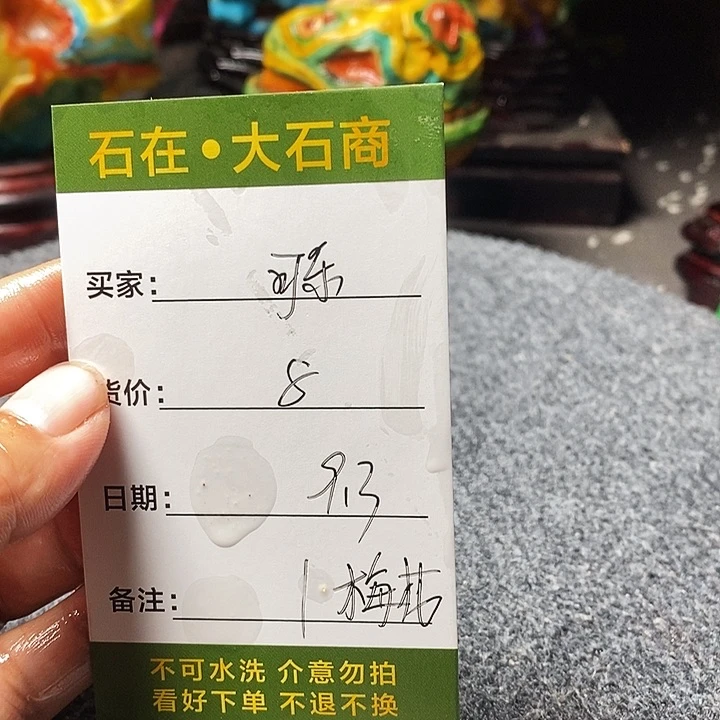 石在•大石商
买家：可乐
货价：8
日期：9.13
备注：1梅花
不可水洗 介意勿拍
看好下单 不退不换